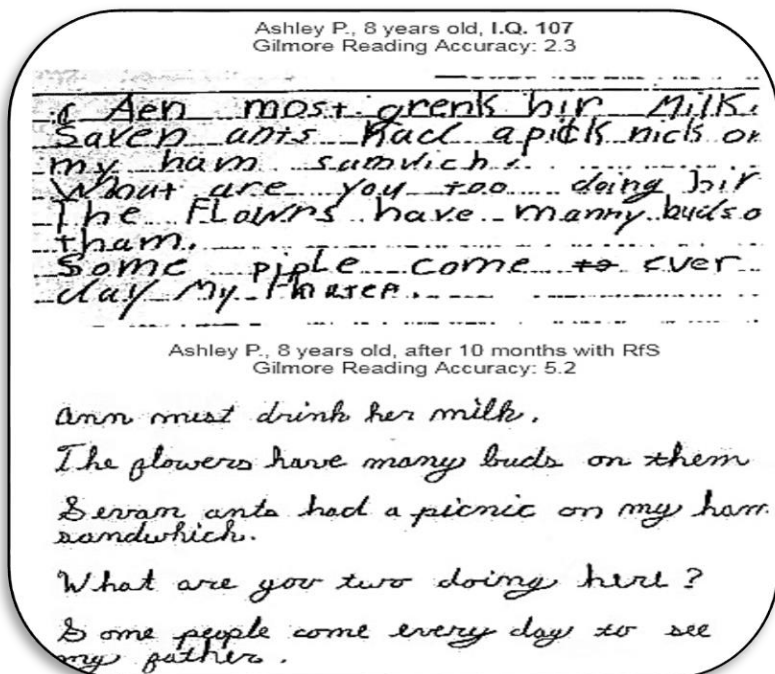 Ashley P., 8 years old, I.Q. 107
Gilmore Reading Accuracy: 2.3
Aen most grenk hir Milk.
Saven ants had a pick nick on
my ham samvich.
What are you too doing hir
The FLowrs have manny buds o
tham.
Some piple come to ever
day My
Ashley P., 8 years old, after 10 months with RfS
Gilmore Reading Accuracy: 5.2
Ann must drink her milk.
The flowers have many buds on them
Sevan ants had a picnic on my ham
sandwhich.
What are you two doing here?
Some people come every day to see
my father.